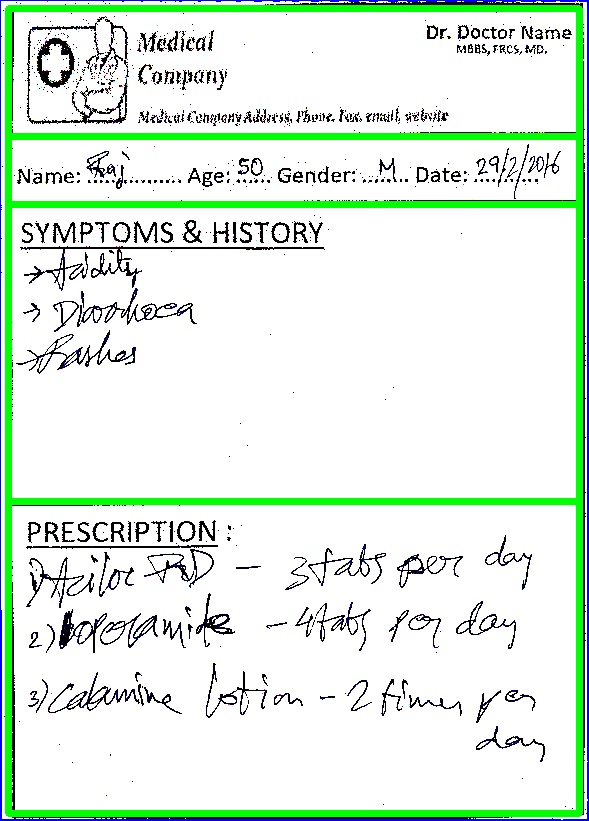 Medical
Company
Dr. Doctor Name
MBBS, FRCS, MD.
Medical Company Address, Phone, Fax, email, website
Name: Raj Age: 50 Gender: M Date: 29/2/2016
SYMPTOMS & HISTORY
→ Acidity
→ Diarrhoea
→ Rashes
PRESCRIPTION :
1) Aciloc RD – 3 tabs per day
2) Loperamide – 4 tabs per day
3) Calamine lotion – 2 times per
day